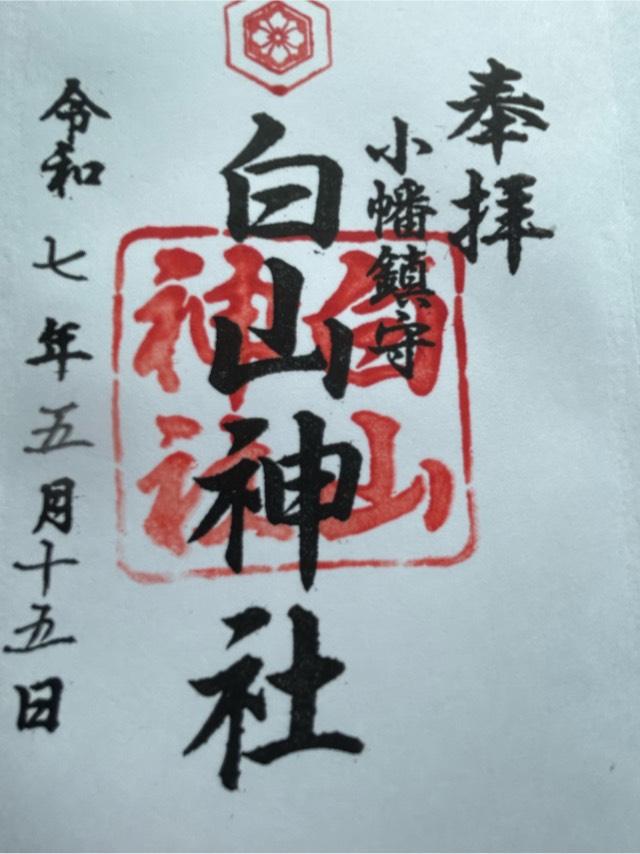 奉拝
小幡鎮守
白山神社
白山
神社
令和七年五月十五日